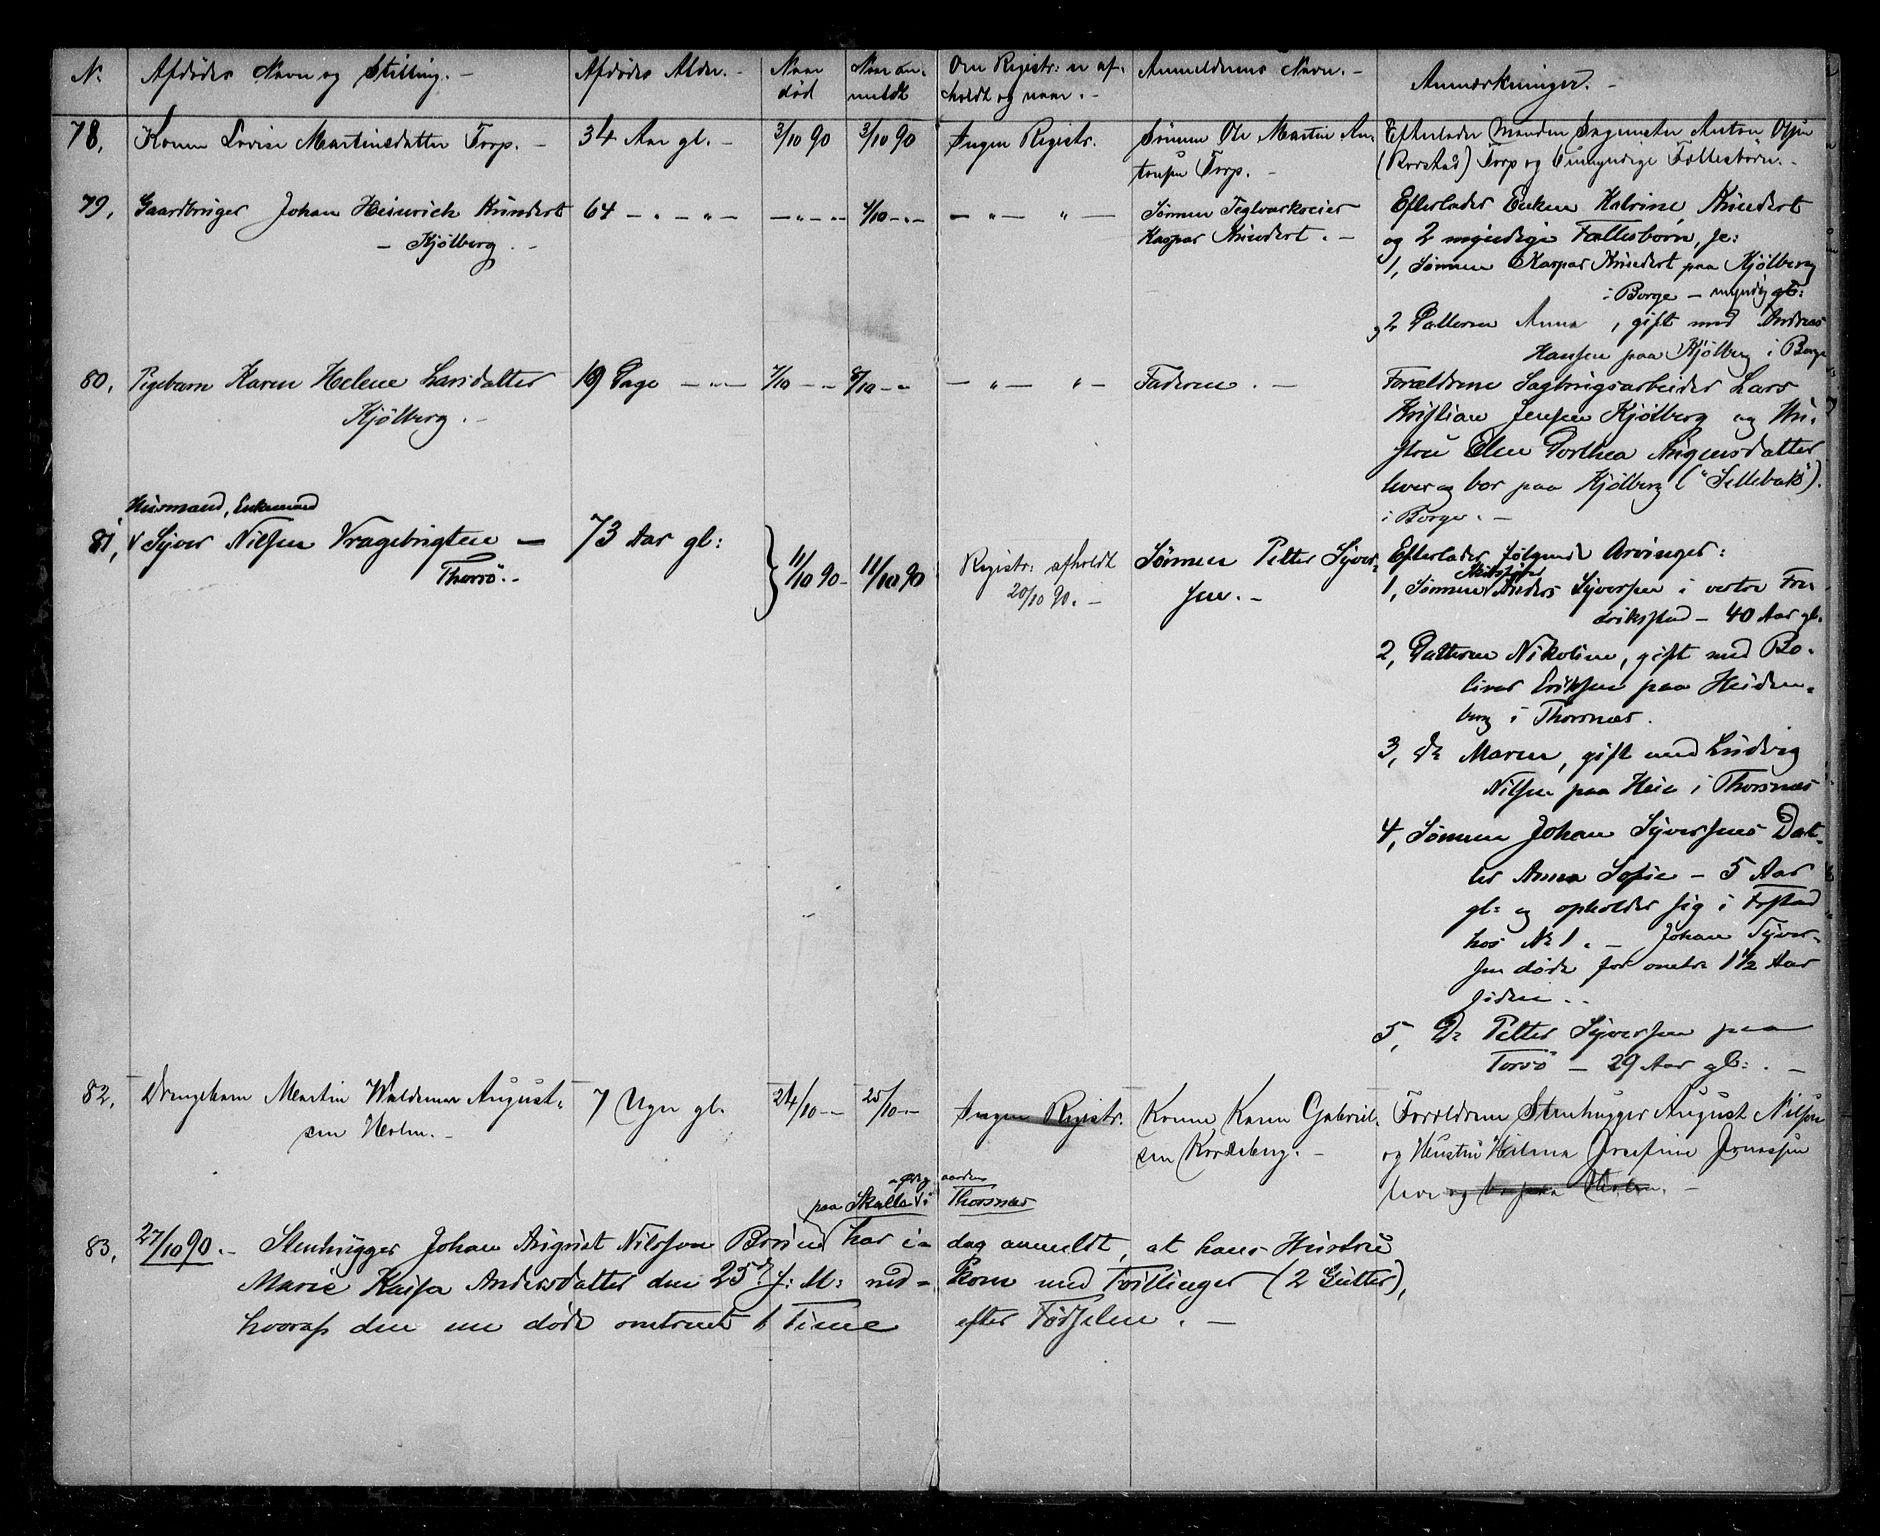 N: Afdødes Navn og Stilling. — Afdødes Alder. — Naar død Naar anmeldt Om Registr: er afholdt og naar. — Anmelderens Navn. — Anmærkninger. —
78, Konen Lovise Martinsdatter Torp. — 34 Aar gl. — 3/10 90 3/10 90 Ingen Registr. Sønnen Ole Martin An-
tonsen Torp. —
Efterlader Manden Sagmester Anton Olsen
(Rorstad) Torp og Umyndige Fællesbørn. —
79, Gaardbruger Johan Heinrich Kundert 64 — " — " — — " — — 4/10 — " — — " — " —
— Kjølberg. —
Sønnen Teglværkseier
Kaspar Kundert. —
Efterlader Enken Katrine Kundert
og 2 myndige Fællesbørn, se:
1, Sønnen Kaspar Kundert paa Kjølberg
i Borge — myndig gl:
og 2 Datteren Anna, gift med Andreas
Hansen paa Kjølberg i Borge
80, Pigebarn Karen Helene Larsdatter 19 Dage — " — 7/10 — " — 8/10 — " — — " — " — Faderen. —
Kjølberg. —
Forældrene Sagbrugsarbeider Lars
Kristian Jensen Kjølberg og Hu-
stru Elen Dorthea Augensdatter
lever og bor paa Kjølberg ("Sellebak").
i Borge. —
Husmand, Enkemand
81, Syver Nilsen Vragebrigten —
Thorsø. —
73 Aar gl: 11/10 90 — 11/10 90 Registr: afholdt
20/10 90. —
Sønnen Petter Syver-
sen. —
Efterlader følgende Arvinger:
1, Sønnen Anders Syversen i vestre Fre-
drikstad — 40 Aar gl.
2, Datteren Nikoline, gift med Bo-
liver Eriksen paa Heiden-
berg i Thorsnæs.
3, Do Maren, gift med Ludvig
Nilsen paa Heie i Thorsnæs
4, Sønnen Johan Syversens Dat-
ter Anna Sofie — 5 Aar
gl: og opholder sig i Frstad
hos No 1. — Johan Syver-
sen døde for omtr. 1 1/2 Aar
siden. —
5, Do Petter Syversen paa
Torsø — 29 Aar gl: . —
82, Drengebarn Martin Waldemar August-
sen Holm. —
7 Uger gl. 24/10 — " — 25/10 — " — Ingen Registr. Konen Karen Gabriel-
sen Kordeberg. —
Forældrene Stenhugger August Nilsen
og Hustru Helena Josefine Jonassen
lever og bor paa Holm. —
paa Skalle i Thorsnæs
83, 27/10 90. — Stenhugger Johan August Nilsson Borsen har i dag anmeldt, at hans Hustru
Marie Kaisa Andersdatter den 25d d: M: ned- kom med Tvillinger (2 Gutter),
hvoraf den ene døde omtrent 1 Time efter Fødselen. —